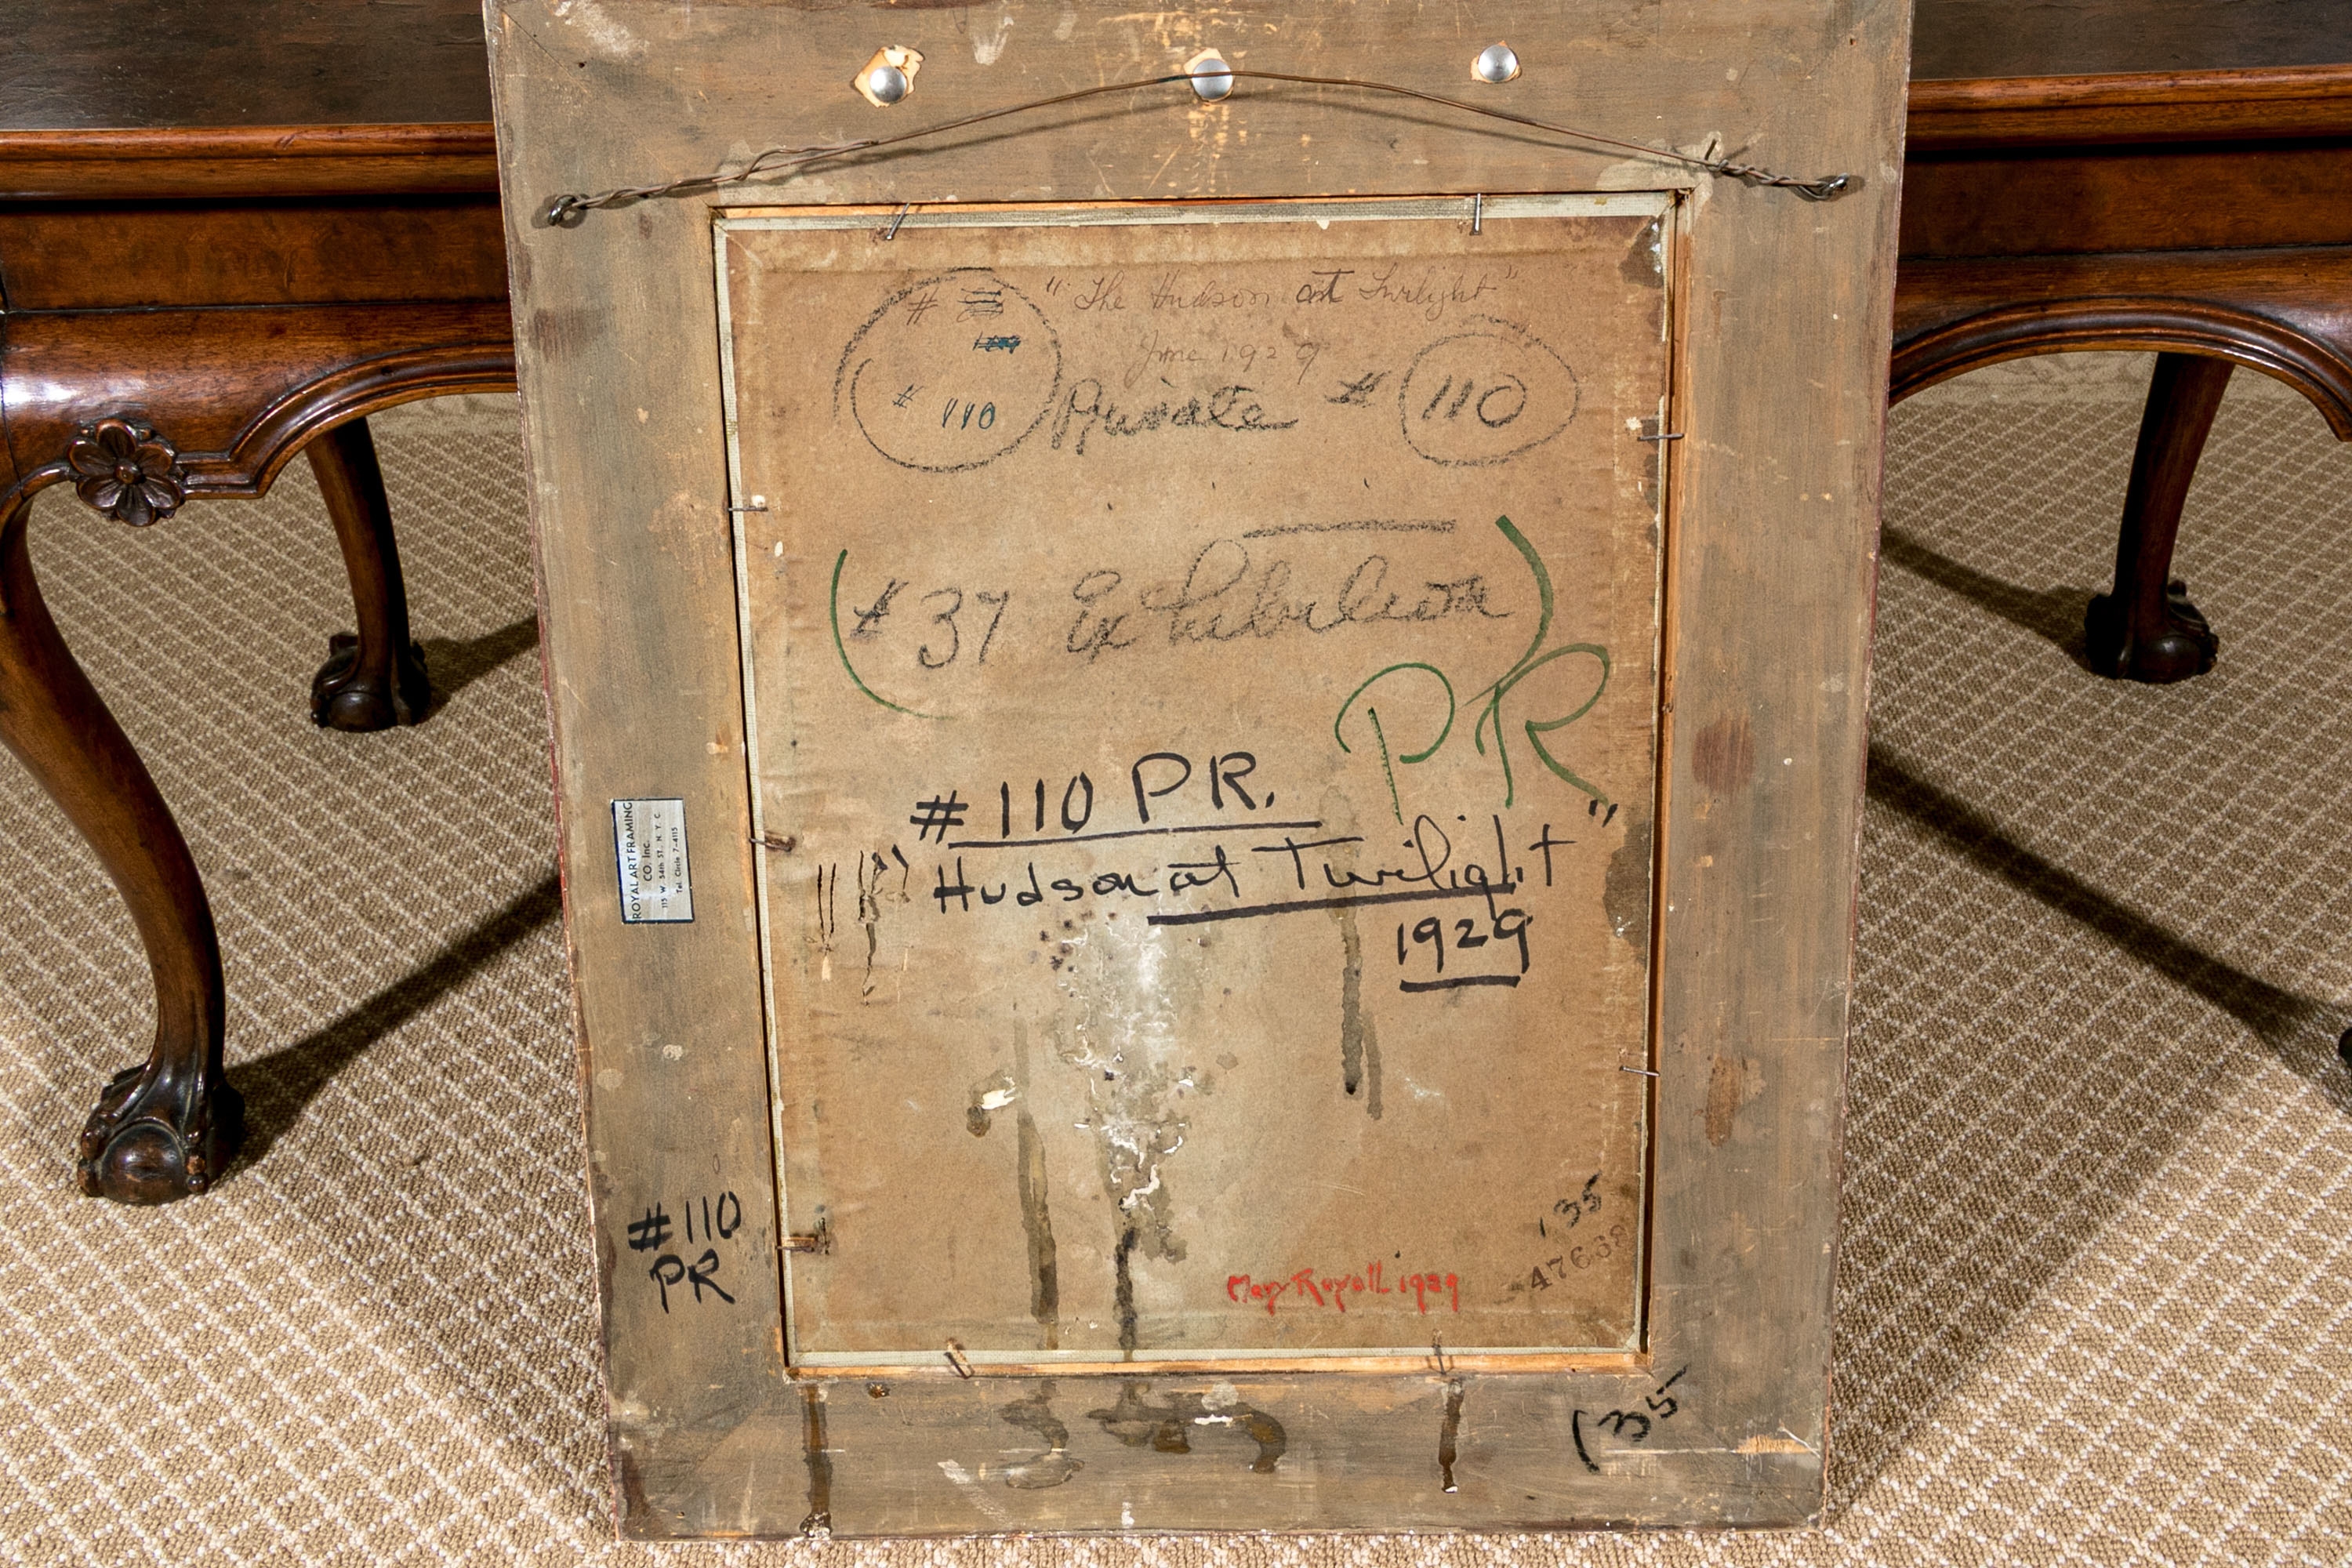 # "The Hudson at Twilight"
June 1929
# 110
Private # 110
(#37 Exhibition)
PR
#110 PR.
"Hudson at Twilight"
1929
ROYAL ART FRAMING
CO. Inc.
115 W. 54th ST., N. Y. C.
Tel. Circle 7-4115
#110
PR
35
47638
Mary Royall 1929
(35